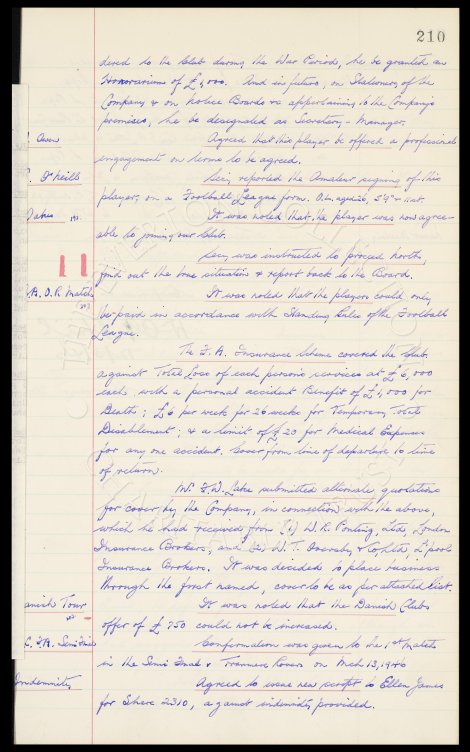 210
dered to the Club during the War Period, he be granted an
Honorarium of £1,000. And in future, on Stationery of the
Company & on Notice Boards re appertaining to the Company's
premises, he be designated as Secretary-Manager.
Agreed that this player be offered a professional
engagement on terms to be agreed.
O'Neill
Secy. reported the Amateur signing of this
player, on a Football League form.
It was noted that the player was now agree-
able to joining our Club.
Secy. was instructed to proceed North,
find out the true situation & report back to the Board.
Match
It was noted that the players could only
be paid in accordance with Standing Rules of the Football
League.
The F.A. Insurance Scheme covered the Club
against Total Loss of each person's services at £6,000
each, with a personal accident Benefit of £1,000 for
Death; £6 per week for 26 weeks for Temporary Total
Disablement; & a limit of £20 for Medical Expenses
for any one accident. Cover from time of departure to time
of return.
Mr. submitted alternate quotations
for cover by the Company, in connection with the above,
which he had received from (i) W.R. Ponting, Ltd, London
Insurance Brokers, and (ii) W.T. L'pool
Insurance Brokers. It was decided to place business
through the first named, cover to be as per attested list.
anish Tour
It was noted that the Danish Clubs
offer of £750 could not be increased.
Semi Final
Confirmation was given to the 1st Match
in the Semi Final v Tranmere Rovers on Mch 13, 1946
Indemnity
Agreed to issue new script to Ellen James
for Share 2310, against indemnity provided.